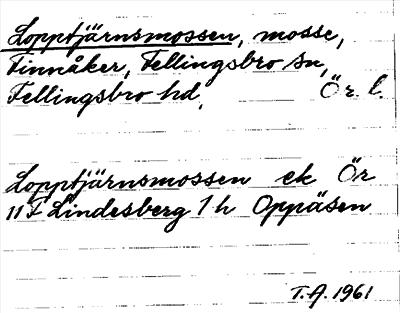 Lopptjärnsmossen, mosse,
Finnåker, Fellingsbro sn,
Fellingsbro hd, Ör. l.
Lopptjärnsmossen ek Ör
11 F Lindesberg 1 h Oppäsen
T.A. 1961